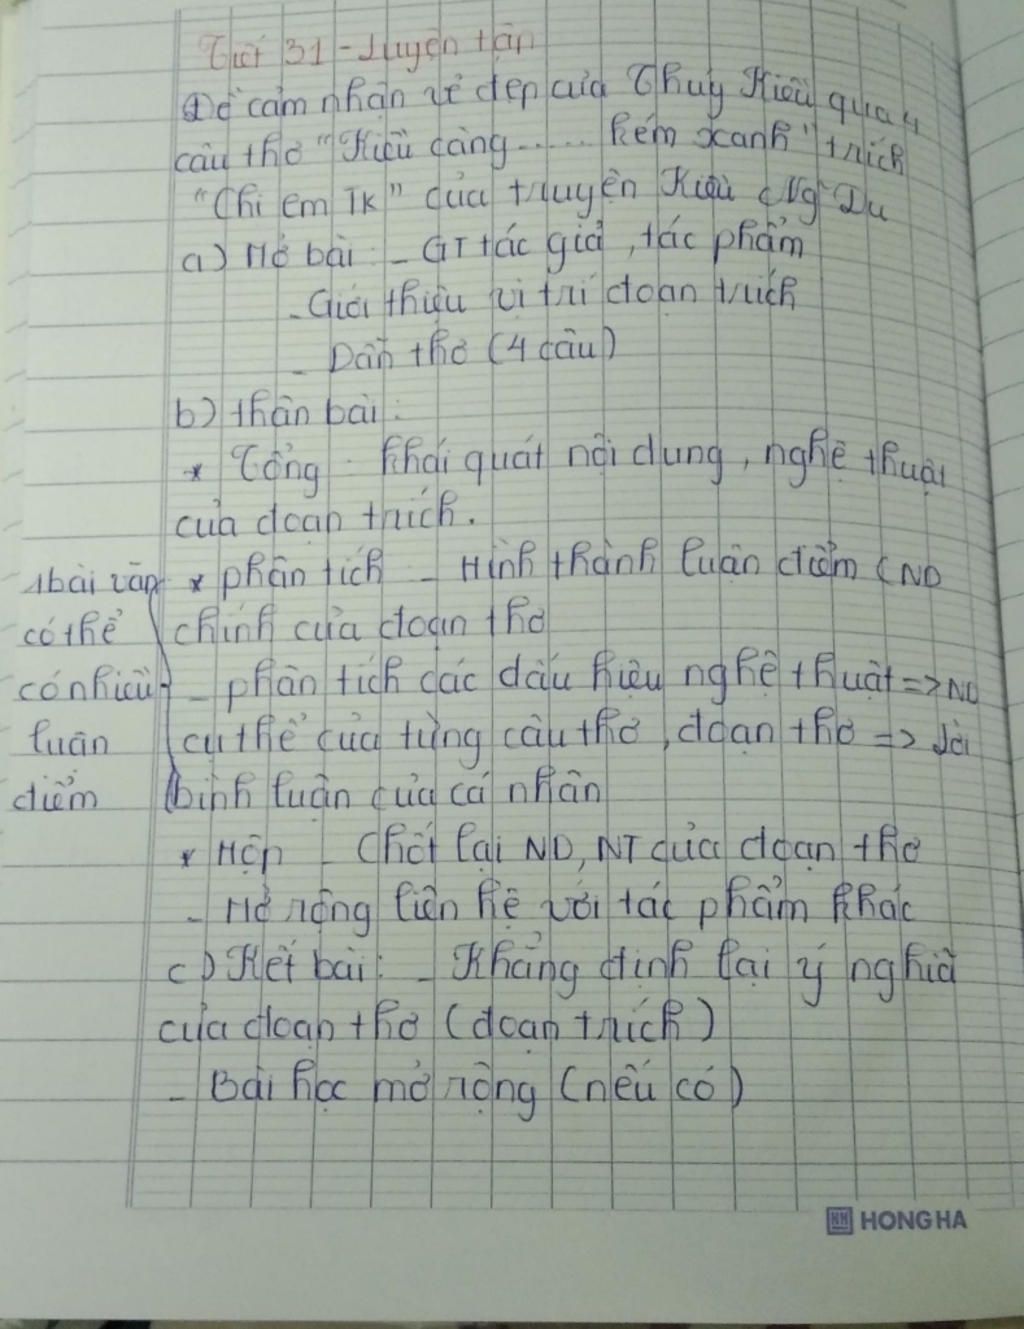 Tiết 31 - Luyện tập
Đề cảm nhận vẻ đẹp của Thuý Kiều qua 4
câu thơ "Kiều càng..... kém xanh" trích
"Chị em TK" của truyện Kiều Ng Du
a) Mở bài - GT tác giả, tác phẩm
- Giới thiệu vị trí đoạn trích
- Dẫn thơ (4 câu)
b) thân bài:
* Tổng - khái quát nội dung, nghệ thuật
của đoạn trích.
* phân tích - Hình thành luận điểm (ND
chính của đoạn thơ
- phân tích các dấu hiệu nghệ thuật => ND
cụ thể của từng câu thơ, đoạn thơ => Lời
bình luận của cá nhân
1 bài văn
có thể
có nhiều
luận
điểm
* Hợp - Chốt lại ND, NT của đoạn thơ
- Mở rộng liên hệ với tác phẩm khác
c) Kết bài: - Khẳng định lại ý nghĩa
của đoạn thơ (đoạn trích)
- Bài học mở rộng (nếu có)
HH HONG HA